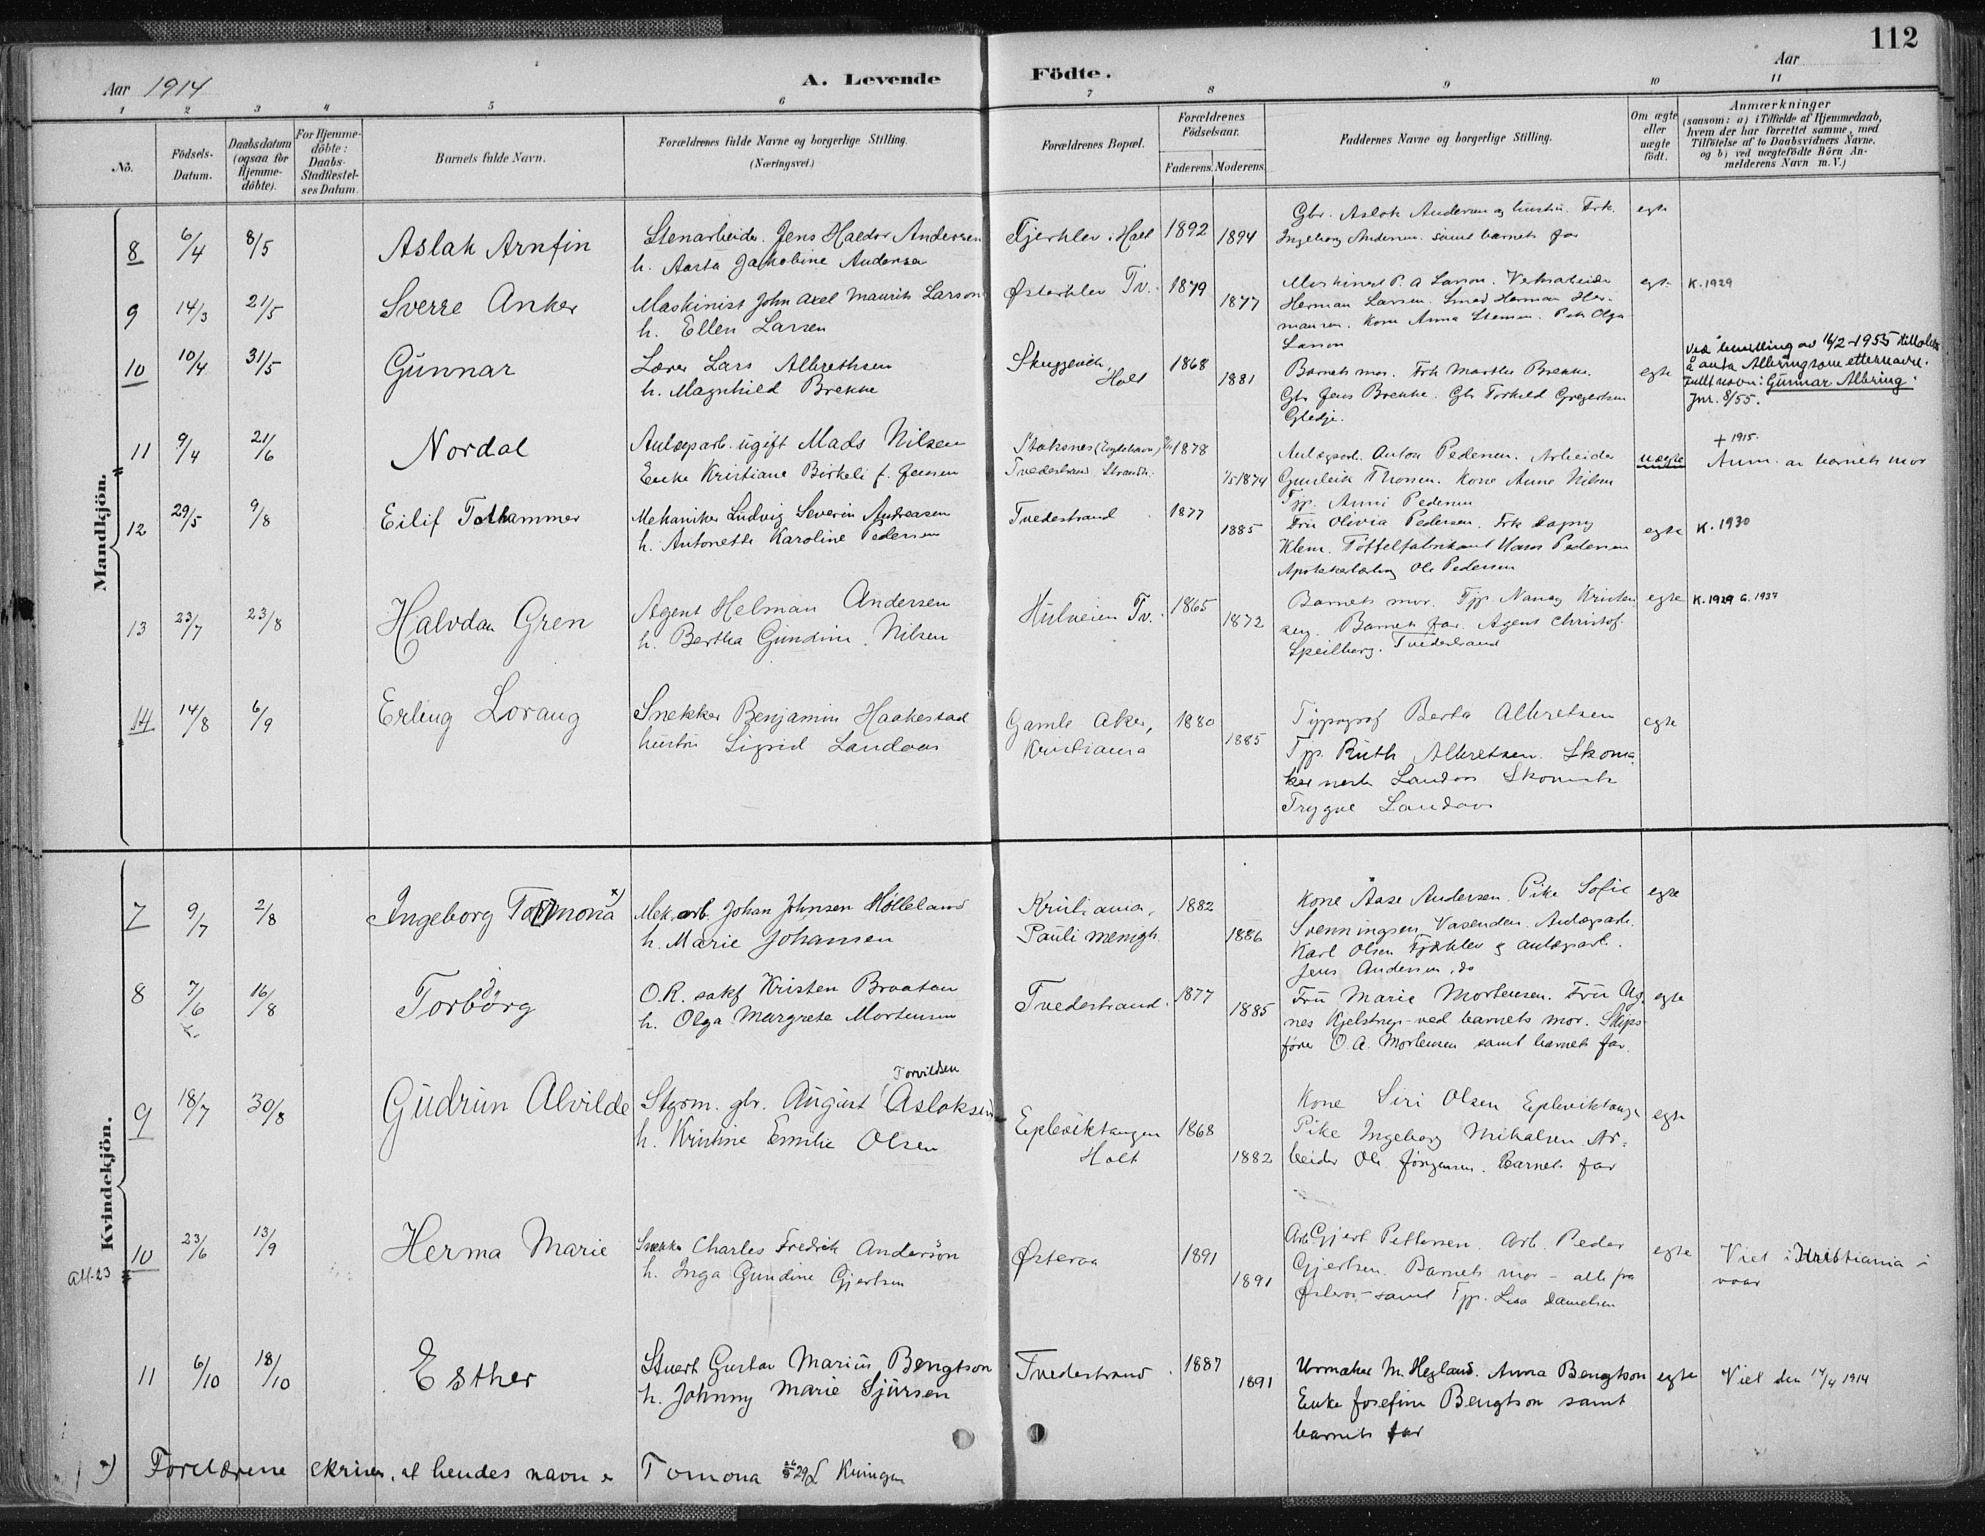 112
Aar 1914
A. Levende
Födte.
Aar
1 2 3 4 5 6 7 8 9 10 11
No.
Födsels-Datum.
Daabsdatum (ogsaa for Hjemme-döbte).
For Hjemme-döbte: Daabs-Stadfæstel-ses Datum.
Barnets fulde Navn.
Forældrenes fulde Navne og borgerlige Stilling.
(Næringsvei.)
Forældrenes Bopæl.
Forældrenes Födselsaar.
Faderens. Moderens.
Faddernes Navne og borgerlige Stilling.
Om ægte eller uægte födt.
Anmærkninger
(saasom: a) i Tilfælde af Hjemmedaab,
hvem der har forrettet samme, med
Tilföielse af to Daabsvidners Navne,
og b) ved uægtefödte Börn An-
melderens Navn m. V.)
Mandkjön.
8 6/4 8/5 Aslak Arnfin
Stenarbeider. Jens Haldor Andersen
h. Aasta Jakobine Andersen
Fjerklev i Holt 1892 1894
Gbr. Aslak Andersen og hustru. Frk.
Ingeborg Andersen samt barnets far
egte
9 14/3 21/5 Sverre Anker
Maskinist John Axel Maurits Larson
h. Ellen Larsen
Østerklev Tv. 1879 1877
Maskinist P. A. Larson.
Herman Larsen. Smed Herman Her-
mansen. Kone Anna Stensen. Olga
Larson
egte K. 1929
10 10/4 31/5 Gunnar
Lærer Lars Albrethsen
h. Magnhild Brekke
Skuggevik, Holt 1868 1881
Barnets mor. Frk Marthe Brekke.
Gbr Jens Brekke. Gbr Torkild Gregertsen
Gledje.
egte
Ved bevilling av 16/2-1955 tillatels
å anta Albring som etternavn.
Fullt navn: Gunnar Albring.
Jnr. 8/55.
11 9/4 21/6 Nordal
Anlægsarb. ugift Mads Nilsen
Enke Kristiane Birkeli f. Jensen
Stoksnes
Tvedestrand. Strandv.
1878 1/5 1874
Anlægsarb. Anton Pedersen. Arbeider
Gunleik Thorsen. Kone Anne Nilsen
Tjp. Anni Pedersen
uægte
+ 1915.
Anm. av barnets mor
12 29/5 9/8 Eilif Tolhammer
Mekaniker Ludvig Severin Andreasen
h. Antonette Karoline Pedersen
Tvedestrand 1877 1885
Fru Olivia Pedersen. Frk Dagny
Klem. Töffelfabrikant Hans Pedersen
Apothekerlærling Ole Pedersen
egte K. 1930
13 23/7 23/8 Halvdan Gren
Agent Helman Andersen
h. Bertha Gundine Nilsen
Hulveien Tv. 1865 1872
Barnets mor. Tjp Nancy Kristen
sen. Barnets far. Agent Christof.
Speilberg. Tvedestrand
egte K. 1929 G. 1937
14 14/8 6/9 Erling Lorang
Snekker Benjamin Haakestad
hustru Sigrid Landaas
Gamle Aker,
Kristiania
1880 1885
Typograf Berta Albretsen
Tjp. Ruth Albretsen. Skoma-
Landaas Skomak
Trygve Landaas
egte
Kvindekjön.
7 9/7 2/8 Ingeborg Tormona x)
Mek.arb. Johan Johnsen Hölleland
h. Marie Johansen
Kristiania,
Pauli menigh.
1882 1886
Kone Aase Andersen. Pike Sofie
Svenningsen Vasenden. Anlægsarb.
Karl Olsen Fjærklev & anlægsarb.
Jens Andersen, do
egte
8 7/6 16/8 Torbörg
O.R. sakf Kristen Braaten
h. Olga Margrete Mortensen
Tvedestrand. 1877 1885
Fru Marie Mortensen. Fru Ag-
nes Kjelstrup - ved barnets mor. Skips-
fører O. A. Mortensen samt barnets far.
egte
9 18/7 30/8 Gudrun Alvilde
Torvildsen
Stgsm. gbr. August (Aslaksen)
h. Kristine Emilie Olsen
Eplevíktangen
Holt
1868 1882
Kone Siri Olsen Epleviktangen
Pike Ingeborg Mikalsen Ar-
beider Ole Jörgensen. Barnets far
egte
Att. 23
10 23/6 13/9 Herma Marie
Snekker Charles Fredrik Anderson
h. Inga Gundine Gjertsen
Østeraa 1891 1891
Arb Gjert Pettersen. Arb. Peder
Gjertsen. Barnets mor - alle fra
Østeraa - samt Tjp. Lisa Danielsen
egte
Viet i Kristiania i
vaar
11 6/10 18/10 Esther
Stuert Gustav Marius Bengtson
h. Johnny Marie Sjursen
Tvedestrand. 1887 1891
Urmaker M. Hegland. Anna Bengtson
Enke Josefine Bengtson samt
barnets far
egte Viet den 14/4 1914
x) Forældrene skriver, at hendes navn er Tomona 29 Kvingen